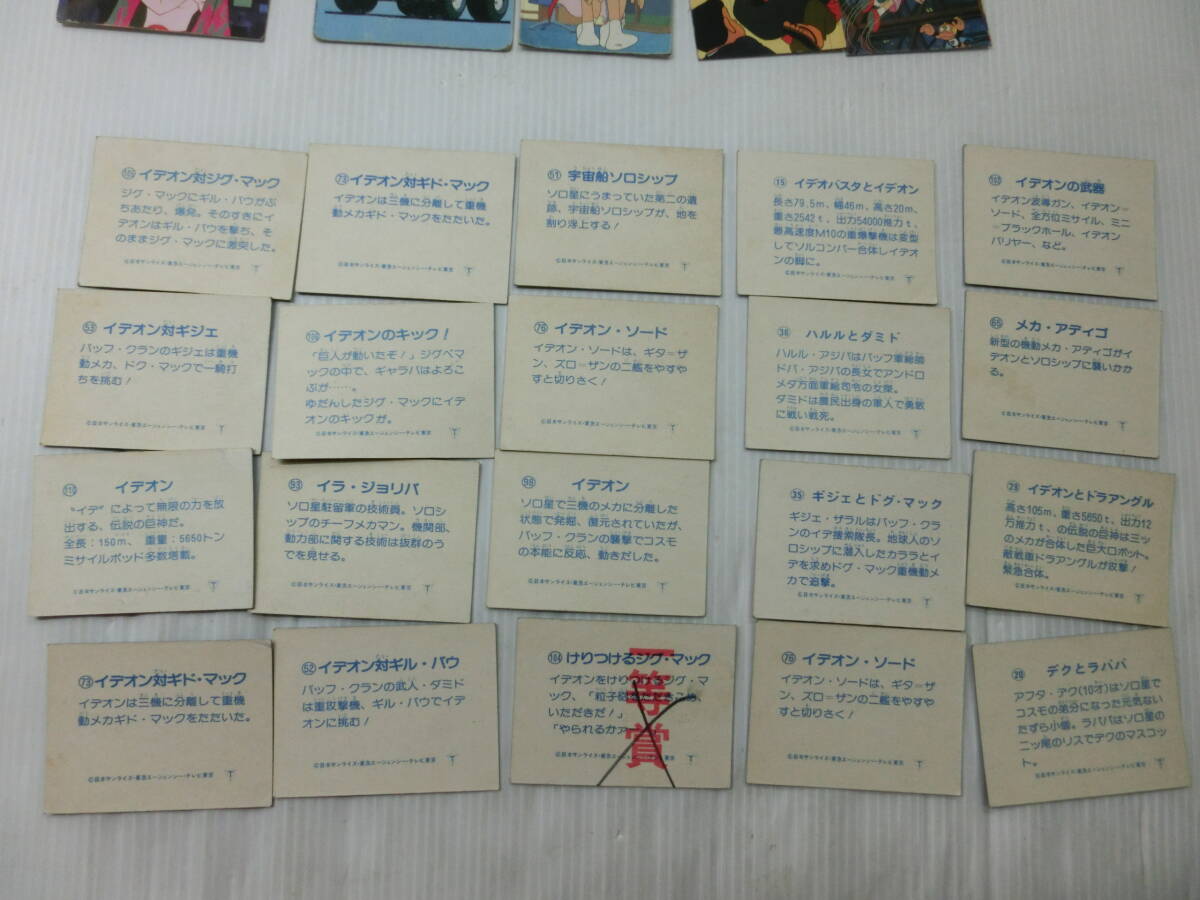 イデオン対ジグ・マック
ジグ・マックにギル・バウがぶ
ちあたり、爆発。そのすきにイ
デオンはギル・バウを撃ち、そ
のままジグ・マックに激突した。
©日本サンライズ・東急エージェンシー・テレビ東京
73 イデオン対ギド・マック
イデオンは三機に分離して重機
動メカギド・マックをたたいた。
©日本サンライズ・東急エージェンシー・テレビ東京
51 宇宙船ソロシップ
ソロ星にうまっていた第二の遺
跡、宇宙船ソロシップが、地を
割り浮上する!
©日本サンライズ・東急エージェンシー・テレビ東京
15 イデオバスタとイデオン
長さ79.5m、幅46m、高さ20m、
重さ2542t、出力54000推力t、
最高速度M10の重爆撃機は変型
してソルコンバー合体しイデオ
ンの脚に。
©日本サンライズ・東急エージェンシー・テレビ東京
イデオンの武器
イデオン波導ガン、イデオン=
ソード、全方位ミサイル、ミニ
=ブラックホール、イデオン
バリヤー、など。
©日本サンライズ・東急エージェンシー・テレビ東京
53 イデオン対ギジェ
バッフ・クランのギジェは重機
動メカ、ドク・マックで一騎打
ちを挑む!
©日本サンライズ・東急エージェンシー・テレビ東京
イデオンのキック!
「巨人が動いたぞ!」ジグベマ
ックの中で、ギャラバはよろこ
ぶが……。
ゆだんしたジグ・マックにイデ
オンのキックが。
©日本サンライズ・東急エージェンシー・テレビ東京
76 イデオン・ソード
イデオン・ソードは、ギタ=ザ
ン、ズロ=ザンの二艦をやすや
すと切りさく!
©日本サンライズ・東急エージェンシー・テレビ東京
36 ハルルとダミド
ハルル・アジバはバッフ軍総帥
ドバ・アジバの長女でアンドロ
メダ方面軍総司令の女傑。
ダミドは農民出身の軍人で勇敢
に戦い戦死。
©日本サンライズ・東急エージェンシー・テレビ東京
65 メカ・アディゴ
新型の機動メカ・アディゴがイ
デオンとソロシップに襲いかか
る。
©日本サンライズ・東急エージェンシー・テレビ東京
110 イデオン
"イデ"によって無限の力を放
出する、伝説の巨神だ。
全長:150m、重量:5650トン
ミサイルポッド多数塔載。
©日本サンライズ・東急エージェンシー・テレビ東京
93 イラ・ジョリバ
ソロ星駐留軍の技術員。ソロシ
ップのチーフメカマン。機関部、
動力部に関する技術は抜群のう
でを見せる。
©日本サンライズ・東急エージェンシー・テレビ東京
98 イデオン
ソロ星で三機のメカに分離した
状態で発掘、復元されていたが、
バッフ・クランの襲撃でコスモ
の本能に反応、動きだした。
©日本サンライズ・東急エージェンシー・テレビ東京
35 ギジェとドグ・マック
ギジェ・ザラルはバッフ・クラ
ンのイデ捜索隊長。地球人のソ
ロシップに潜入したカララとイ
デを求めドグ・マック重機動メ
カで追撃。
©日本サンライズ・東急エージェンシー・テレビ東京
イデオンとドラアングル
高さ105m、重さ5650t、出力12
万推力t、の伝説の巨神は三ッ
のメカが合体した巨大ロボット。
敵戦車ドラアングルが攻撃!
緊急合体。
©日本サンライズ・東急エージェンシー・テレビ東京
73 イデオン対ギド・マック
イデオンは三機に分離して重機
動メカギド・マックをたたいた。
©日本サンライズ・東急エージェンシー・テレビ東京
52 イデオン対ギル・バウ
バッフ・クランの武人・ダミド
は重攻撃機、ギル・バウでイデ
オンに挑む!
©日本サンライズ・東急エージェンシー・テレビ東京
104 けりつけるジグ・マック
イデオンをけりつけるジグ・マ
ック、「粒子
いただきだ!」
「やられるかァ
©日本サンライズ・東急エージェンシー・テレビ東京
一等賞
76 イデオン・ソード
イデオン・ソードは、ギタ=ザ
ン、ズロ=ザンの二艦をやすや
すと切りさく!
©日本サンライズ・東急エージェンシー・テレビ東京
20 デクとラババ
アフタ・デク(10才)はソロ星で
コスモの弟分になった元気ない
たずら小僧。ラババはソロ星の
二ッ尾のリスでデクのマスコッ
ト。
©日本サンライズ・東急エージェンシー・テレビ東京